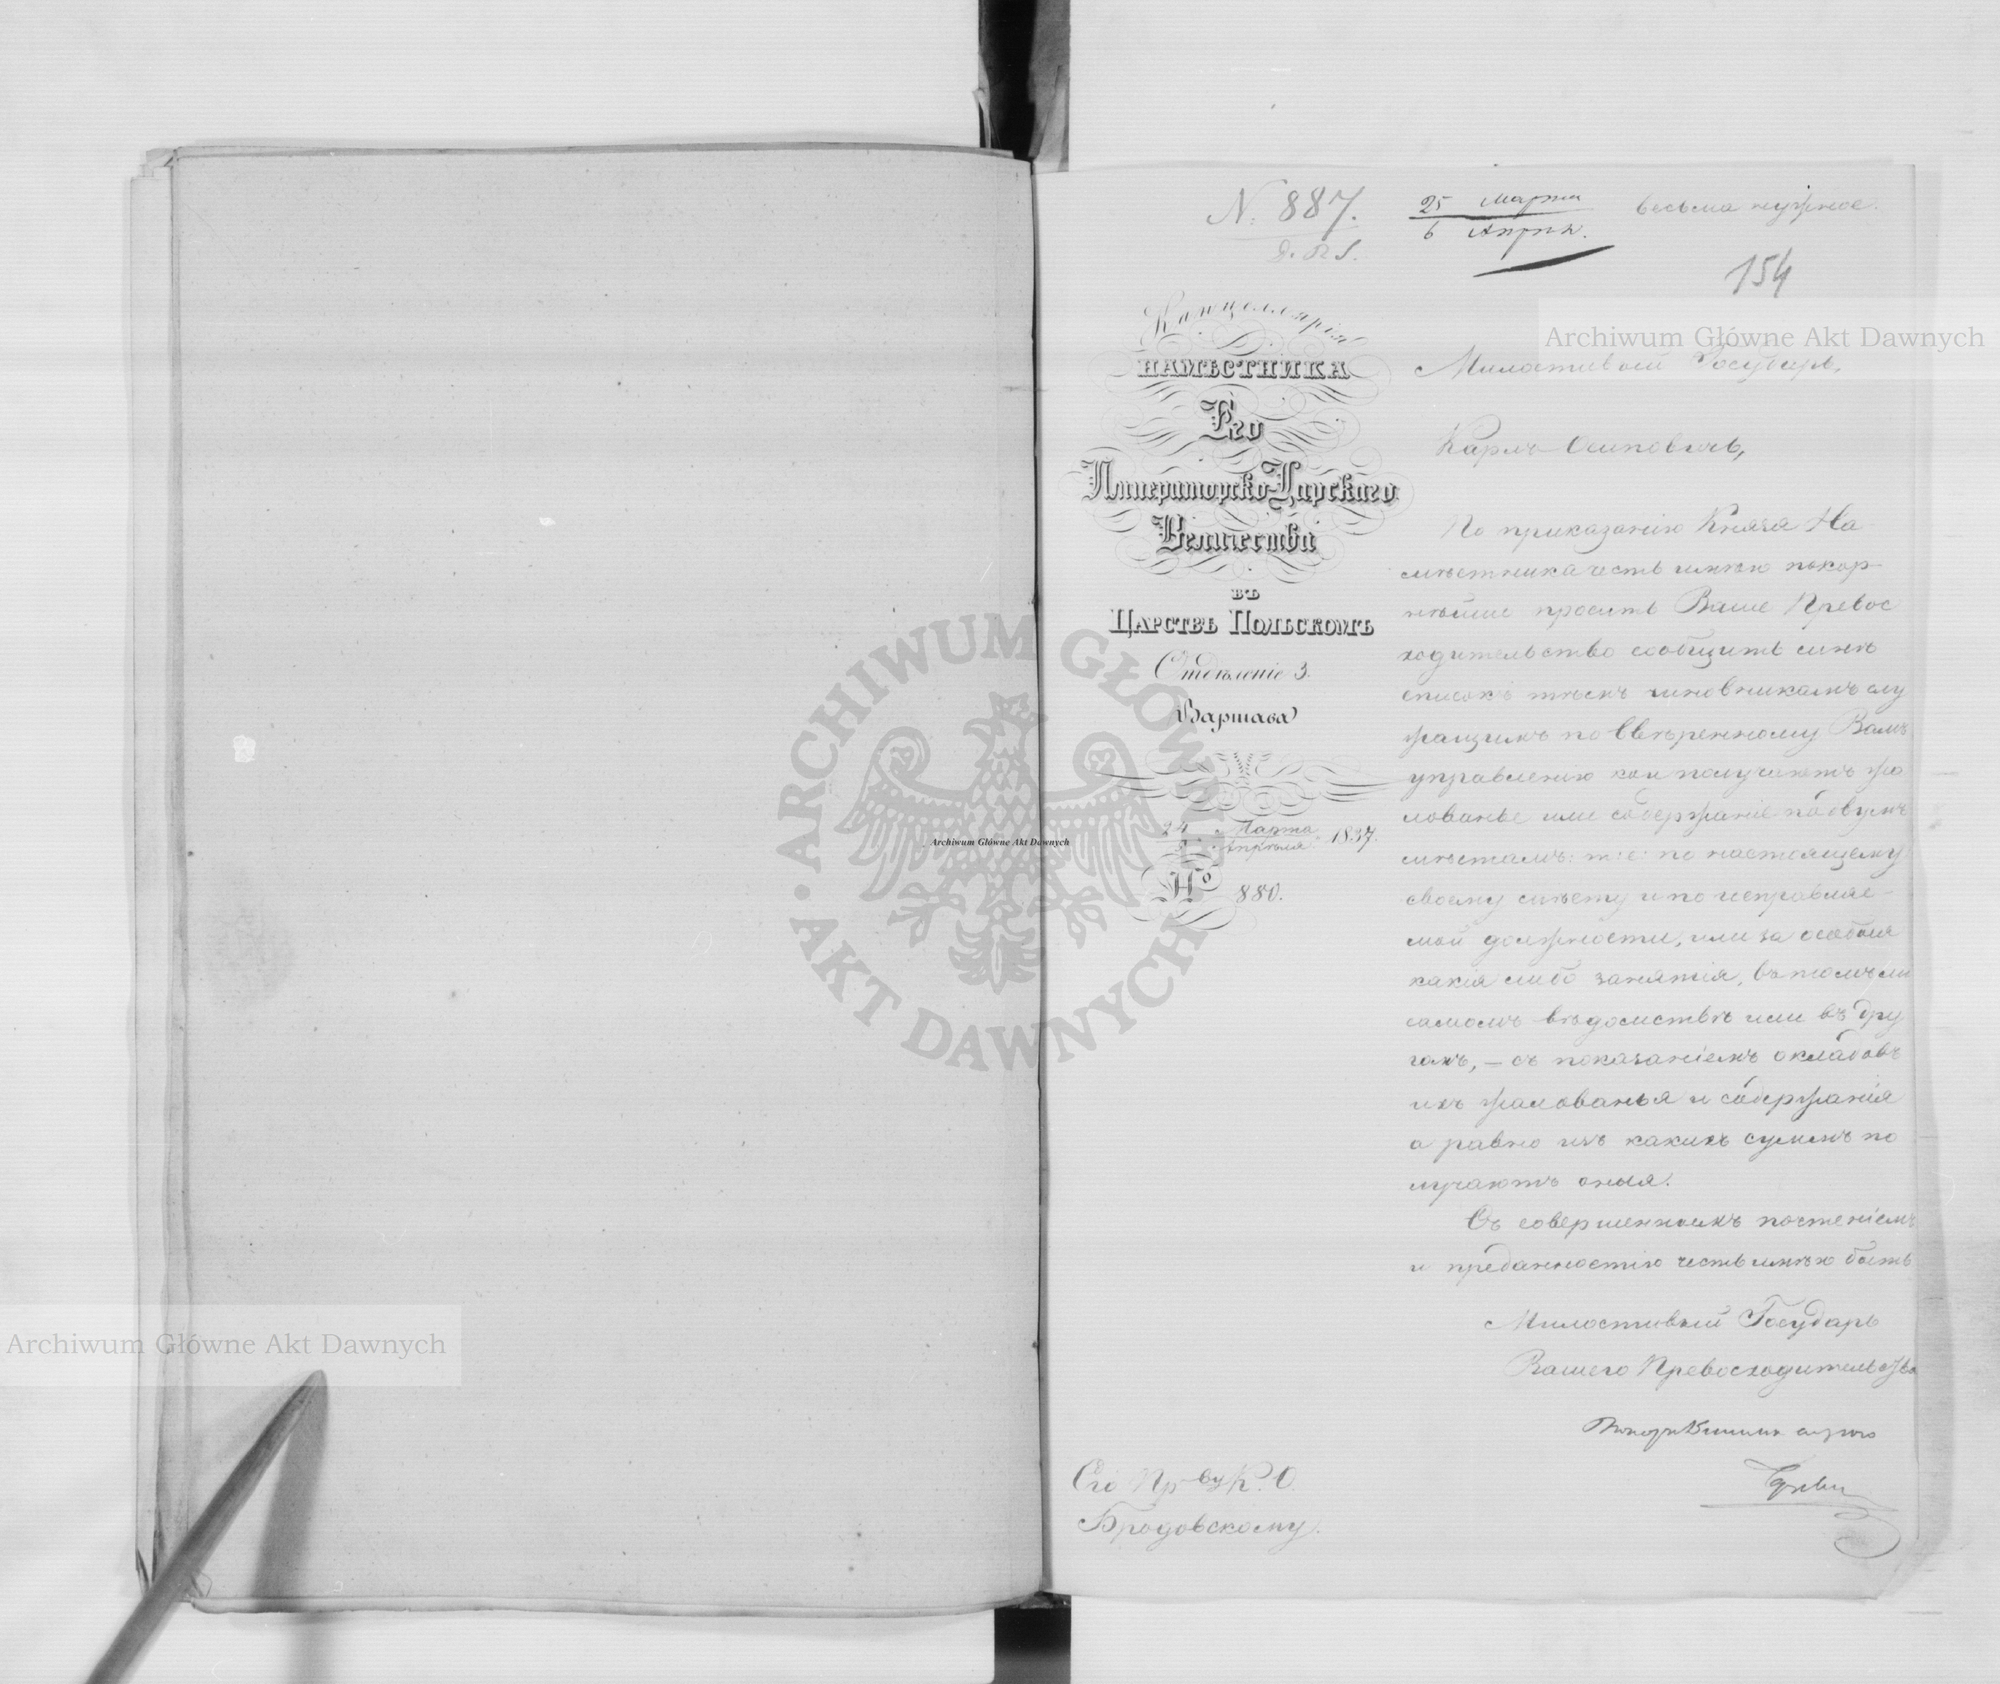 N. 887.
25 Марта
6 Апрѣл.
весьма нужное.
154
Канцеллярія
НАМѢСТНИКА
Его
Императорско-Царскаго
Величества
ВЪ
ЦАРСТВѢ ПОЛЬСКОМЪ
Отдѣленіе 3.
Варшава
24 Марта
5 Апрѣля 1837.
No 880.
Милостивый Государь,
Карлъ Осиповичъ,
По приказанію Князя На
мѣстника честь имѣю покор
нѣйше просить Ваше Превос
ходительство сообщить мнѣ
списокъ тѣмъ чиновникамъ слу
жащимъ по ввѣренному Вамъ
управленію кои получаютъ жа
лованье или содержаніе по двумъ
мѣстамъ: т: е: по настоящему
своему мѣсту и по исправляе-
мой должности, или за особыя
какія либо занятія, въ томъ ли
самомъ вѣдомствѣ или въ дру
гомъ, — съ показаніемъ окладовъ
ихъ жалованья и содержанія
а равно изъ какихъ суммъ по
лучаютъ оныя.
Съ совершеннымъ почтеніемъ
и преданностію честь имѣю быть
Милостивый Государь
Вашего Превосходительства
покорнѣйшимъ слугою
Его Пр-ву К. О.
Бродовскому.
Archiwum Główne Akt Dawnych
Archiwum Główne Akt Dawnych
Archiwum Główne Akt Dawnych
ARCHIWUM GŁÓWNE AKT DAWNYCH